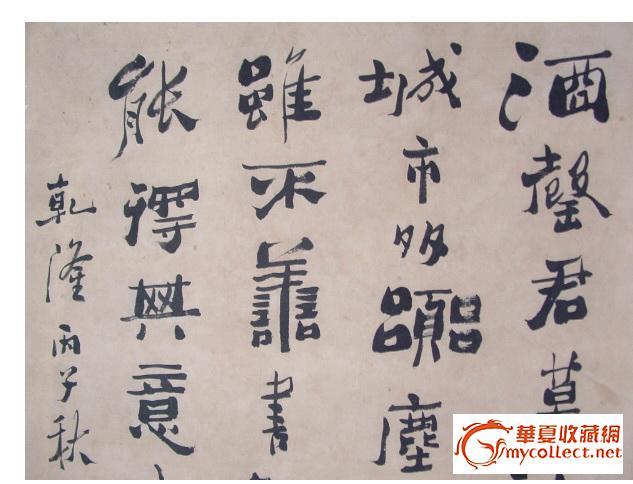 酒罄君莫
城市多囂塵
雖不譱書
能得意
乾隆丙子秋
華夏收藏網
mycollect.net